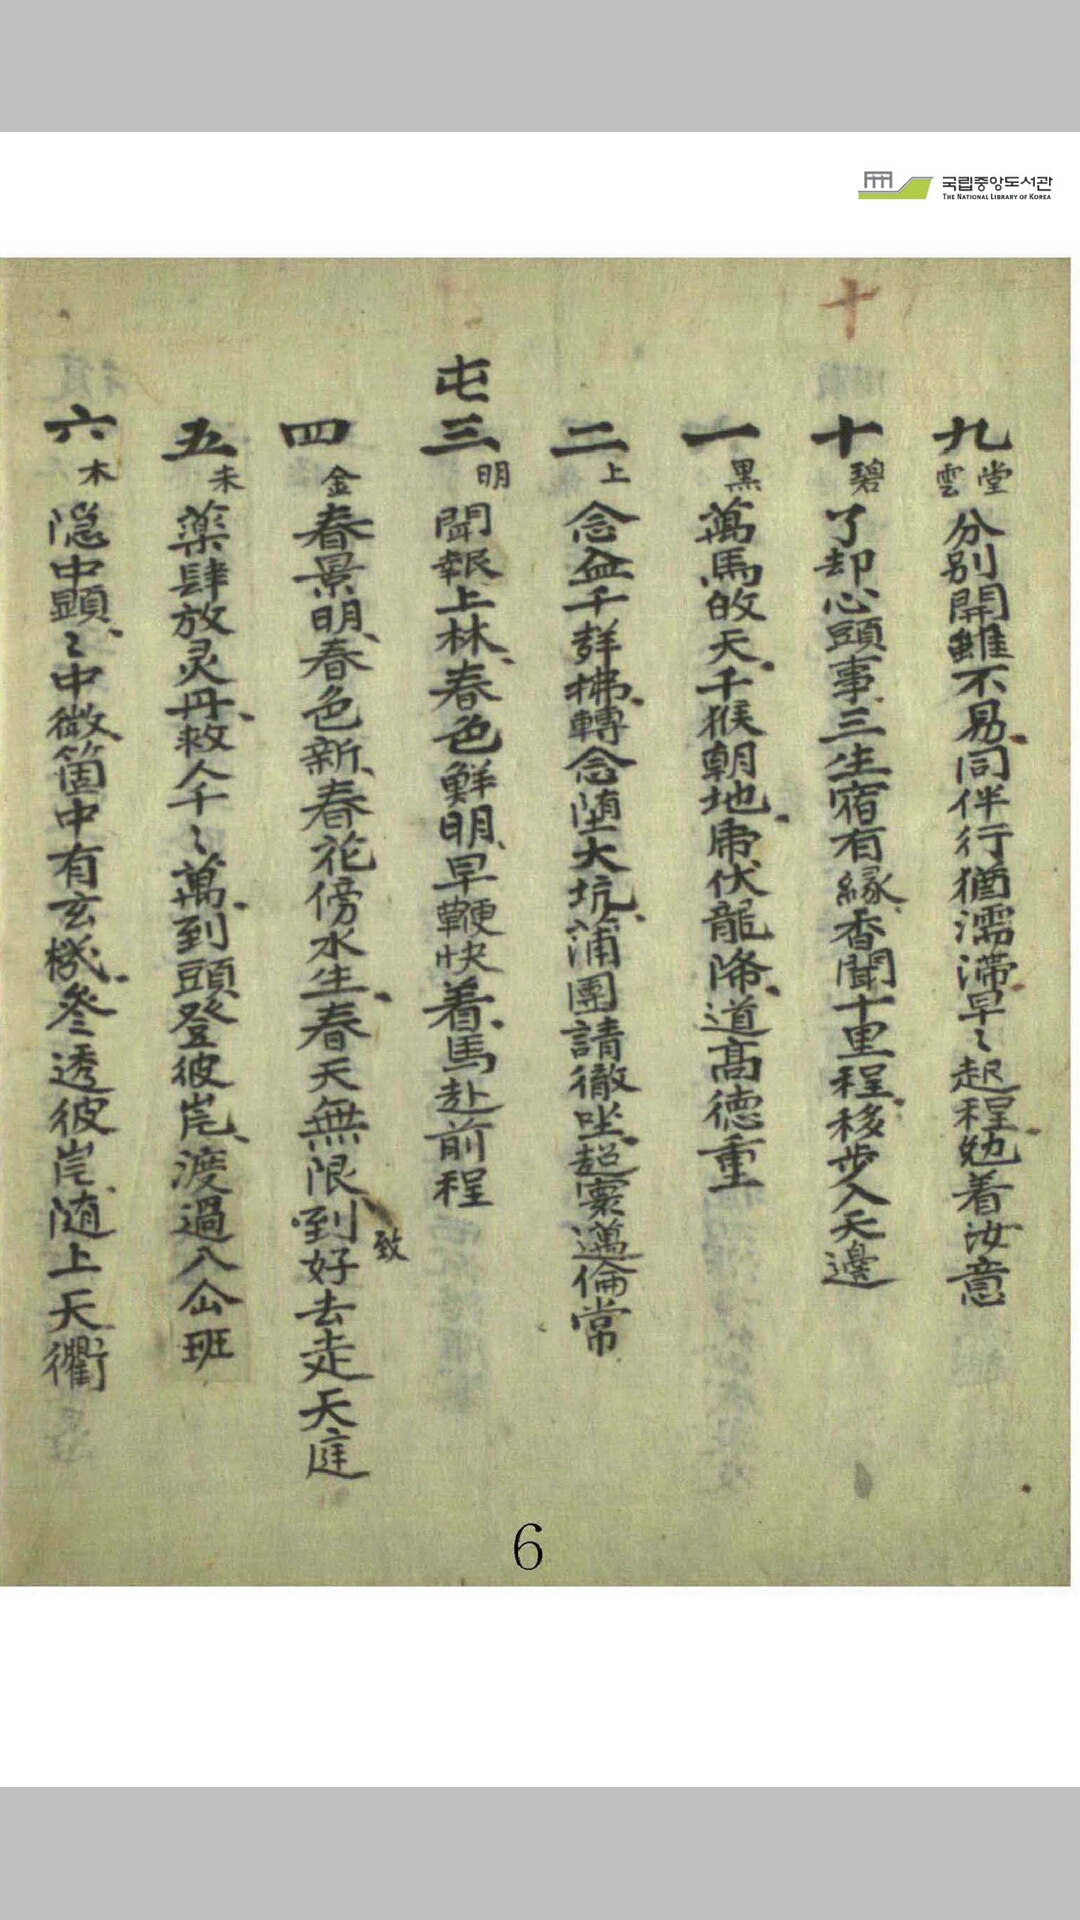 국립중앙도서관
THE NATIONAL LIBRARY OF KOREA
十
九 堂雲 分別開雖不易同伴行猶濡滯早〻起程勉着汝意
十 碧 了却心頭事三生宿有緣香聞十里程移步入天邊
一 黑 萬馬的天千猴朝地虎伏龍降道高德重
二 上 念盆千群拂轉念墮大坑蒲團請徹坐超靈邁倫常
屯三 明 聞報上林春色鮮明早鞭快着馬赴前程
四 金 春景明春色新春花傍水生春天無限到好去走天庭
致
五 未 藥肆放灵丹救人千〻萬到頭登彼岸渡過八仚班
六 木 隐中顕〻中微箇中有玄機叅透彼岸随上天衢
6